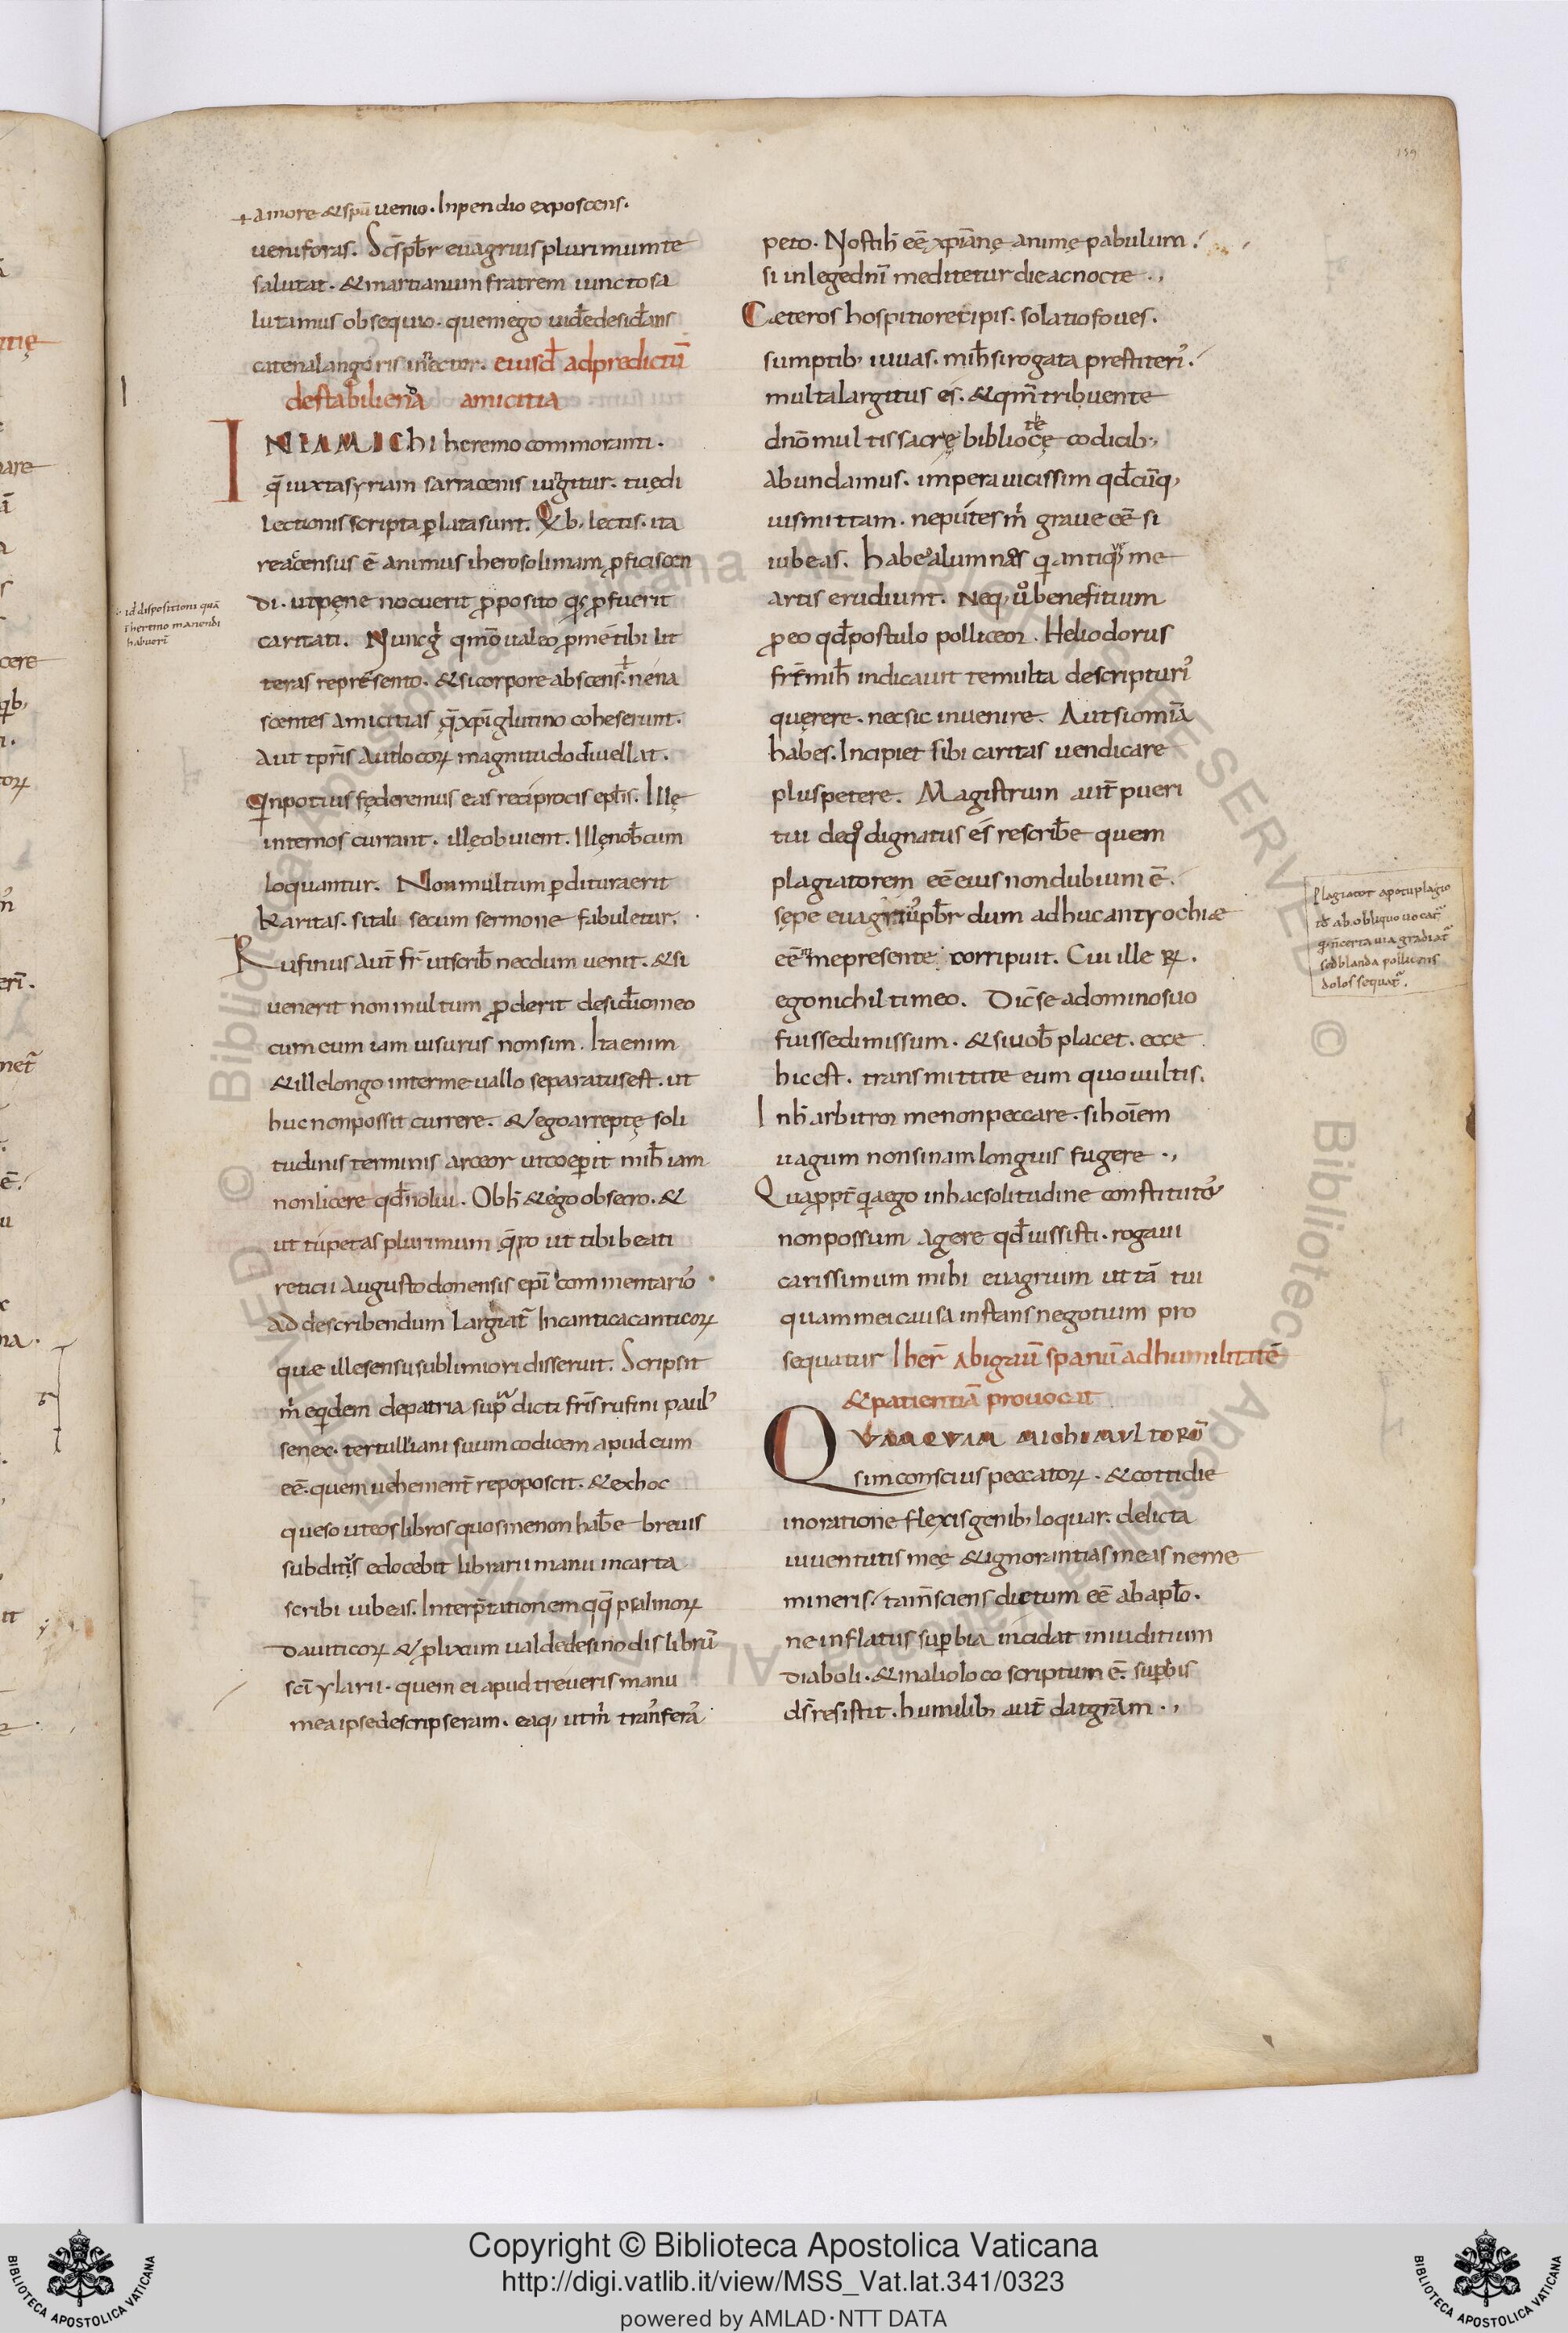 159
+ amore & spū uenio. Inpendio exposcens.
ueni foras. Scs̄ pb̄r euagrius plurimum te
salutat. & martianum fratrem iuncto sa
lutamus obsequio. quem ego uidēdesid̄ans
catena langoris in̄ector. eiusd̄ ad predictū
de stabiliend̄a amicitia
IN EA MICHI heremo commoranti.
q̄ iuxta syriam sarracenis iungitur. tuę di
lectionis scripta plata sunt. Qb; lectis. ita
reaccensus ē animus iherosolimam ꝓficiscen
di. ut pęne nocuerit ꝓposito qs̨ ꝓfuerit
caritati. Nunc ḡ qm̄o ualeo p me tibi lit
teras represento. & si corpore abscens. ne na
scentes amicitias q̄ xp̄i glutino coheserunt.
Aut tp̄ris aut locoꝝ magnitudo diuellat.
Qin potius fęderemus eas reciprocis epl̄is. Illę
inter nos currant. illę obuient. Illę nob̄cum
loquantur. Non multum pditura erit
karitas. si tali secum sermone fabuletur.
Rufinus aut̄ fr̄ ut scrib̄ necdum uenit. & si
uenerit non multum ꝓderit desid̄io meo
cum eum iam uisurus non sim. Ita enim
& ille longo inter me uallo separatus est. ut
huc non possit currere. & ego arreptę soli
tudinis terminis arceor ut coeperit mih̄ iam
non licere qd̄ nolui. Ob h̄ & ego obsecro. &
ut tu petas plurimum q̄ro ut tibi beati
reticii Augustodonensis ep̄i commentario᾿
Ad describendum largiat᷑ In cantica canticoꝝ
quæ ille sensu sublimiori disseruit. Scripsit
m̄ eqidem de patria supᵃdicti fr̄is rufini paul᾿
senex. tertulliani suum codicem apud eum
eē. quem uehement̄ repoposcit. & ex hoc
queso ut eos libros quos me non hab̄e breuis
subditus edocebit librarii manu in carta
scribi iubeas. Interp̄tationem qq̄ psalmoꝝ
Dauiticoꝝ & ꝓlixum ualde de sinodis librū
sc̄i ylarii. quem ei apud treueris manu
mea ipse descripseram. eaq; ut m̄ trans̄ferā
:· id̄ dispositioni quā
Iheremo manendi
habueri
peto. Nosti h̄ eē xp̄ianę animę pabulum.
si in lege dn̄i meditetur die ac nocte .,
Cæteros hospitio recipis. solatio foues.
sumptib; iuuas. mih̄ si rogata prestiteri᾿.
multa largitus es. & qm̄ tribuente
dn̄o multis sacrę bibliotecę codicib;
abundamus. impera uicissim qd̄cūq;
uis mittam. ne putes m̄ graue eē si
iubeas. Habeo alumnos qi antiquariæ me
artis erudiunt. Neq; uo benefitium
ꝓ eo qd̄ postulo polliceor. Heliodorus
fr̄ mih̄ indicauit te multa descripturi᾿
quęrere. nec sic inuenire. Aut si om̄ia
habes. Incipiet sibi caritas uendicare
plus petere. Magistrum aut̄ pueri
tui de qo dignatus es rescrib̄e quem
plagiatorem eē eius non dubium ē.
sępe euagriu᾿ pb̄r dum adhuc antyochiæ
eēm me presente corripuit. Cui ille ꝶ.
ego nichil timeo. Dic̄ se a domino suo
fuisse dimissum. & si uob̄ placet. ecce
hic est. transmittite eum quo uultis.
In h̄ arbitror me non peccare. si hoīem
uagum non sinam longius fugere .,
Quapropt̄ qia ego in hac solitudine constituto᾿
non possum agere qd̄ iussisti. rogaui
carissimum mihi euagrium ut tā tui
quam mei causa instans negotium pro
sequatur Iher̄ Abigaū spanū ad humilitatē
& patientiā prouocat
QUAMQUAM MICHI MULTORŌ
sim conscius peccatoꝝ. & cottidie
in oratione flexis genib; loquar. delicta
iuuentutis meę & ignorantias meas ne me
mineris. tam̄ sciens dictum eē ab apl̄o.
ne inflatus supbia incidat in iuditium
diaboli. & in alio loco scriptum ē. supbis
ds̄ resistit. humilib; aut̄ dat grām .,
Plagiator apo tu plagio
id̄ ab obliquo uocat᷑
qi incerta uia gradiat᷑
sed blanda pollicens
dolos sequat᷑.
Copyright © Biblioteca Apostolica Vaticana
http://digi.vatlib.it/view/MSS_Vat.lat.341/0323
powered by AMLAD·NTT DATA
BIBLIOTECA APOSTOLICA VATICANA
BIBLIOTECA APOSTOLICA VATICANA